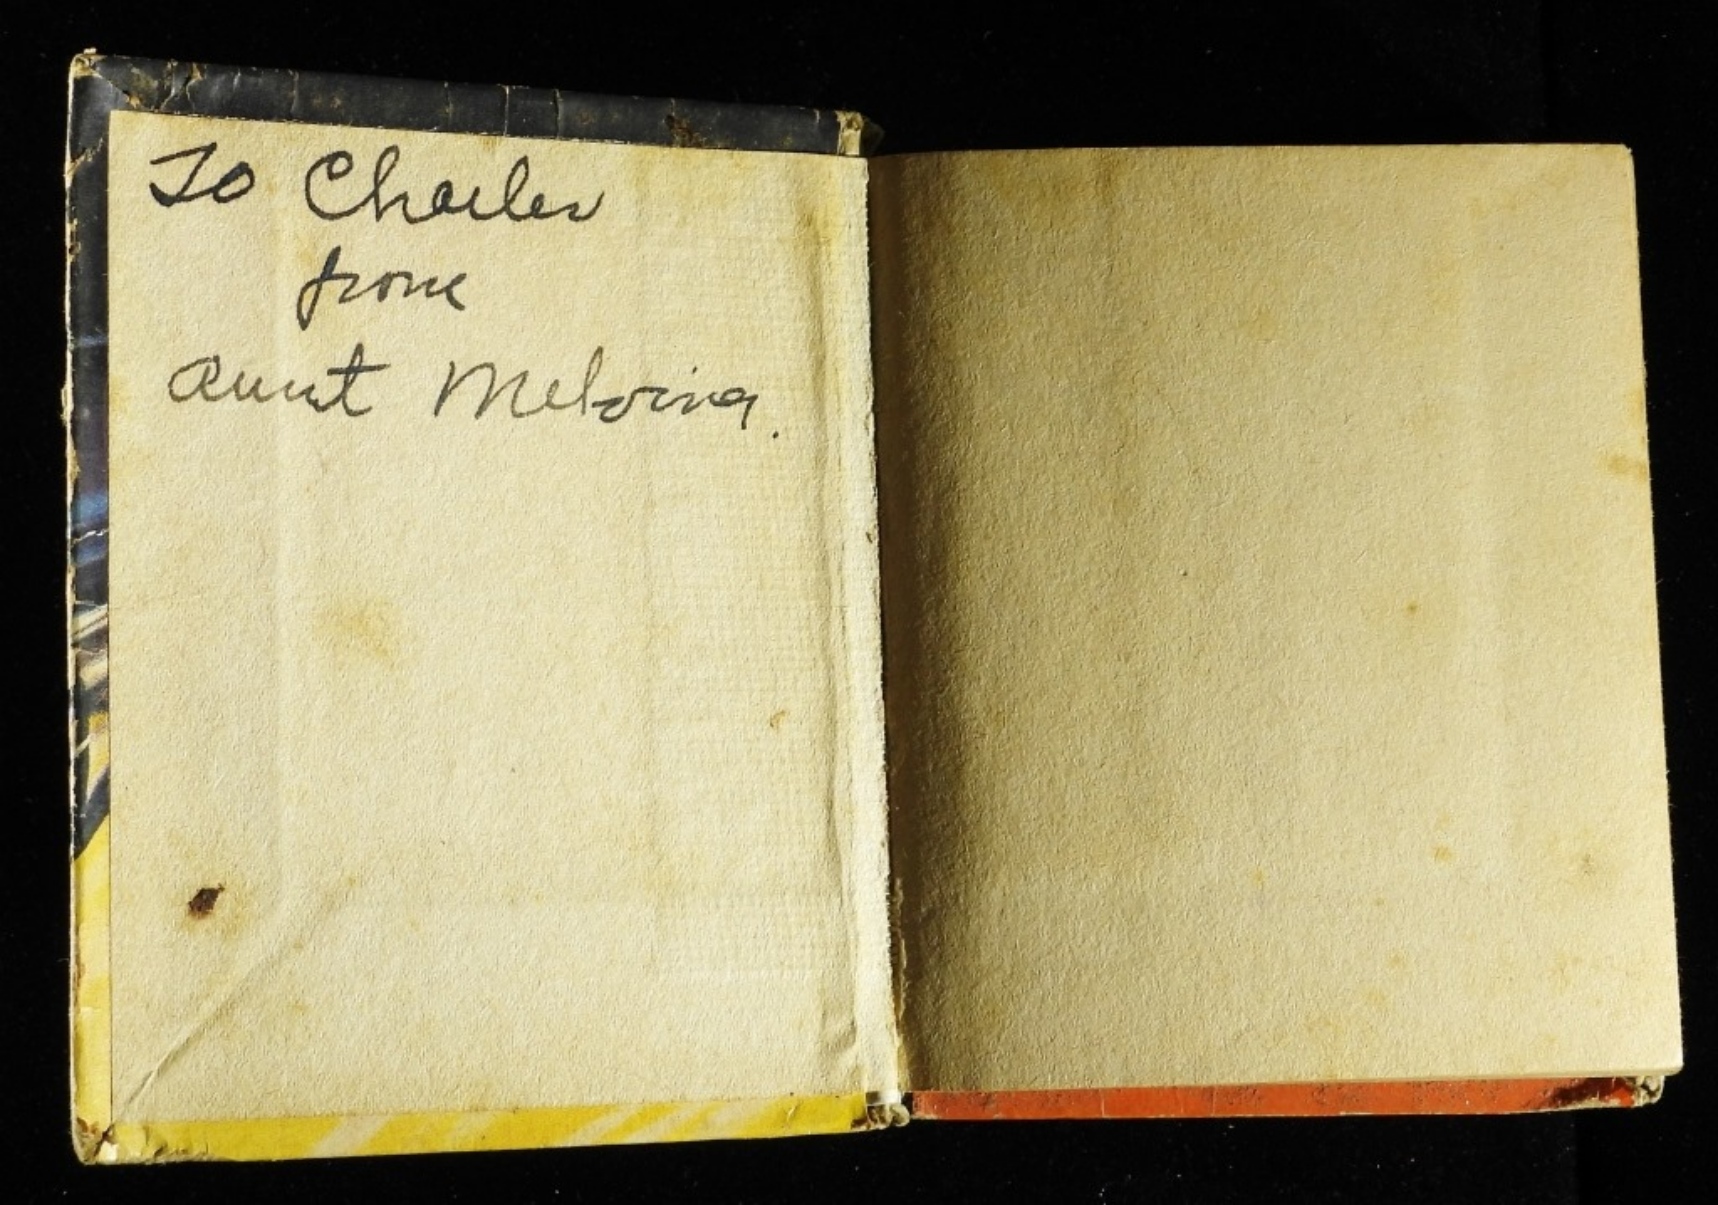 To Charles
from
Aunt Melvina.